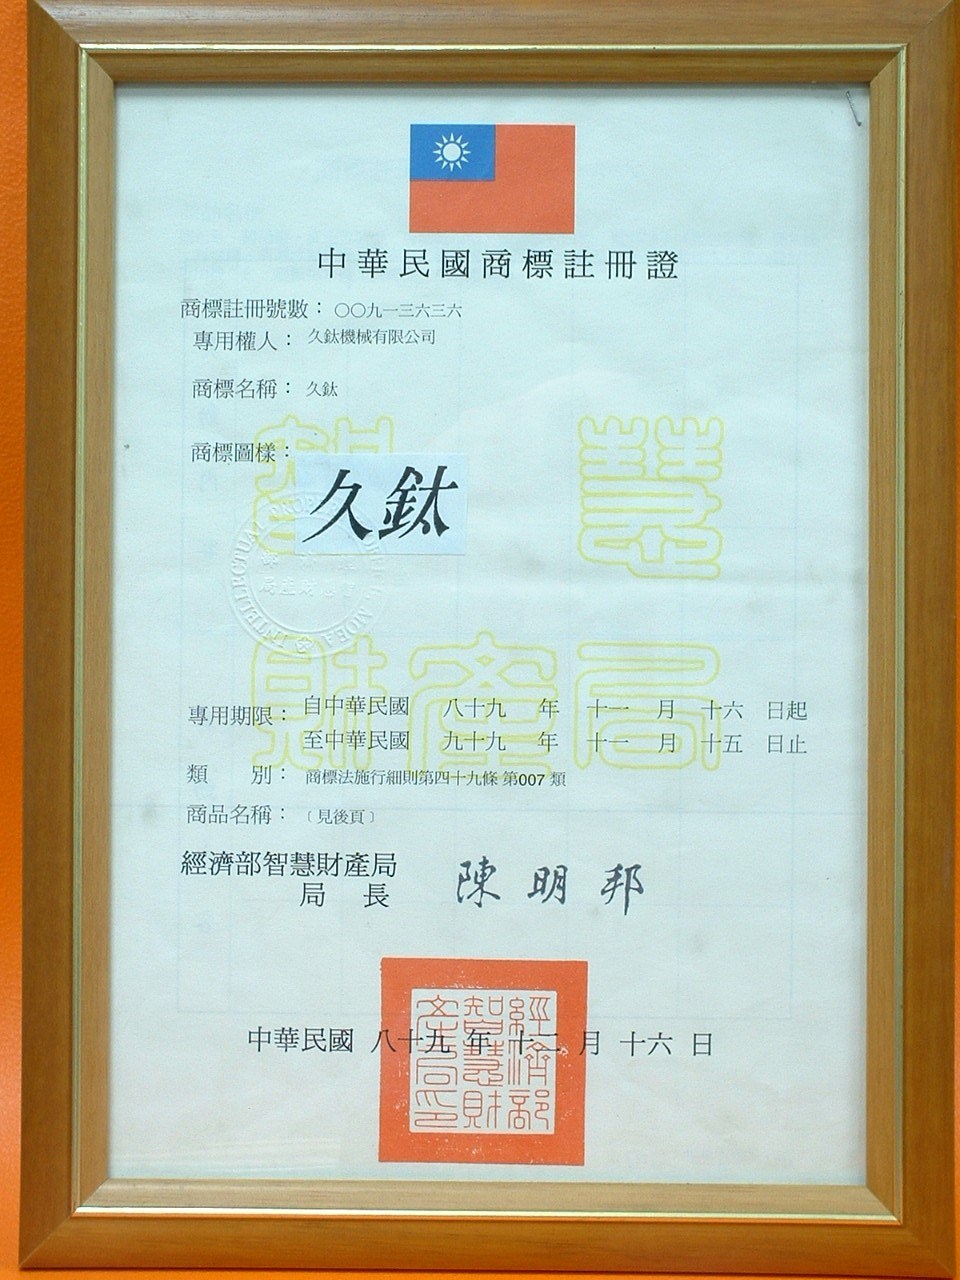 中華民國商標註冊證
商標註冊號數：〇〇九一三六三六
專用權人：久鈦機械有限公司
商標名稱：久鈦
商標圖樣：
久鈦
智慧
財產局
INTELLECTUAL PROPERTY OFFICE MOEA
專用期限：自中華民國 八十九 年 十一 月 十六 日起
至中華民國 九十九 年 十一 月 十五 日止
類 別：商標法施行細則第四十九條 第007 類
商品名稱：〔見後頁〕
經濟部智慧財產局
局 長 陳明邦
中華民國 八十九 年 十二 月 十六 日
經濟部
智慧財
產局印